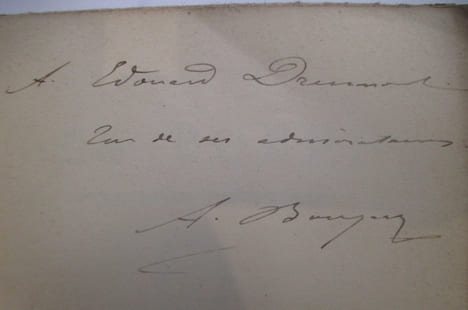 A. Edouard Drumont
Un de ses admirateurs
A.